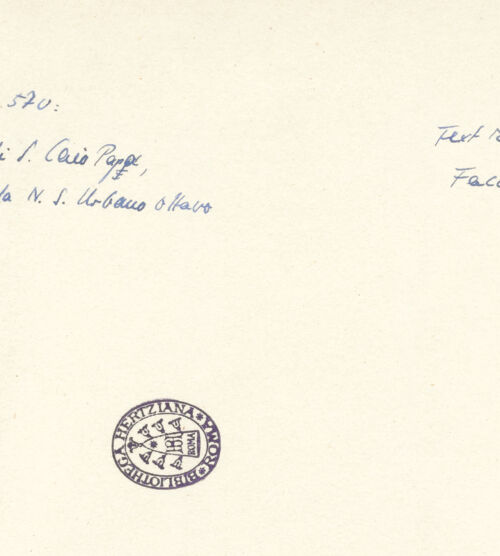 570:
S. Caio Papa,
N. S. Urbano ottavo
Text
BIBLIOTHECA HERTZIANA * ROMA *
ROMA